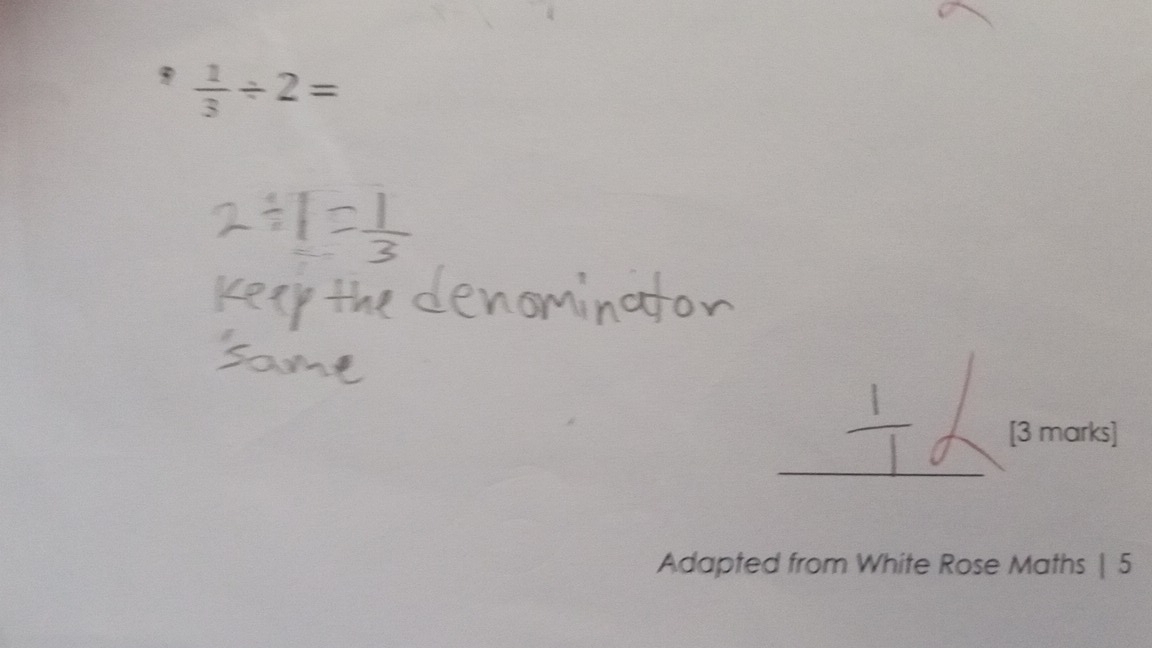 1/3 ÷ 2 =
2 ÷ 1 = 1/3
keep the denominator
same
1/1
[3 marks]
Adapted from White Rose Maths | 5